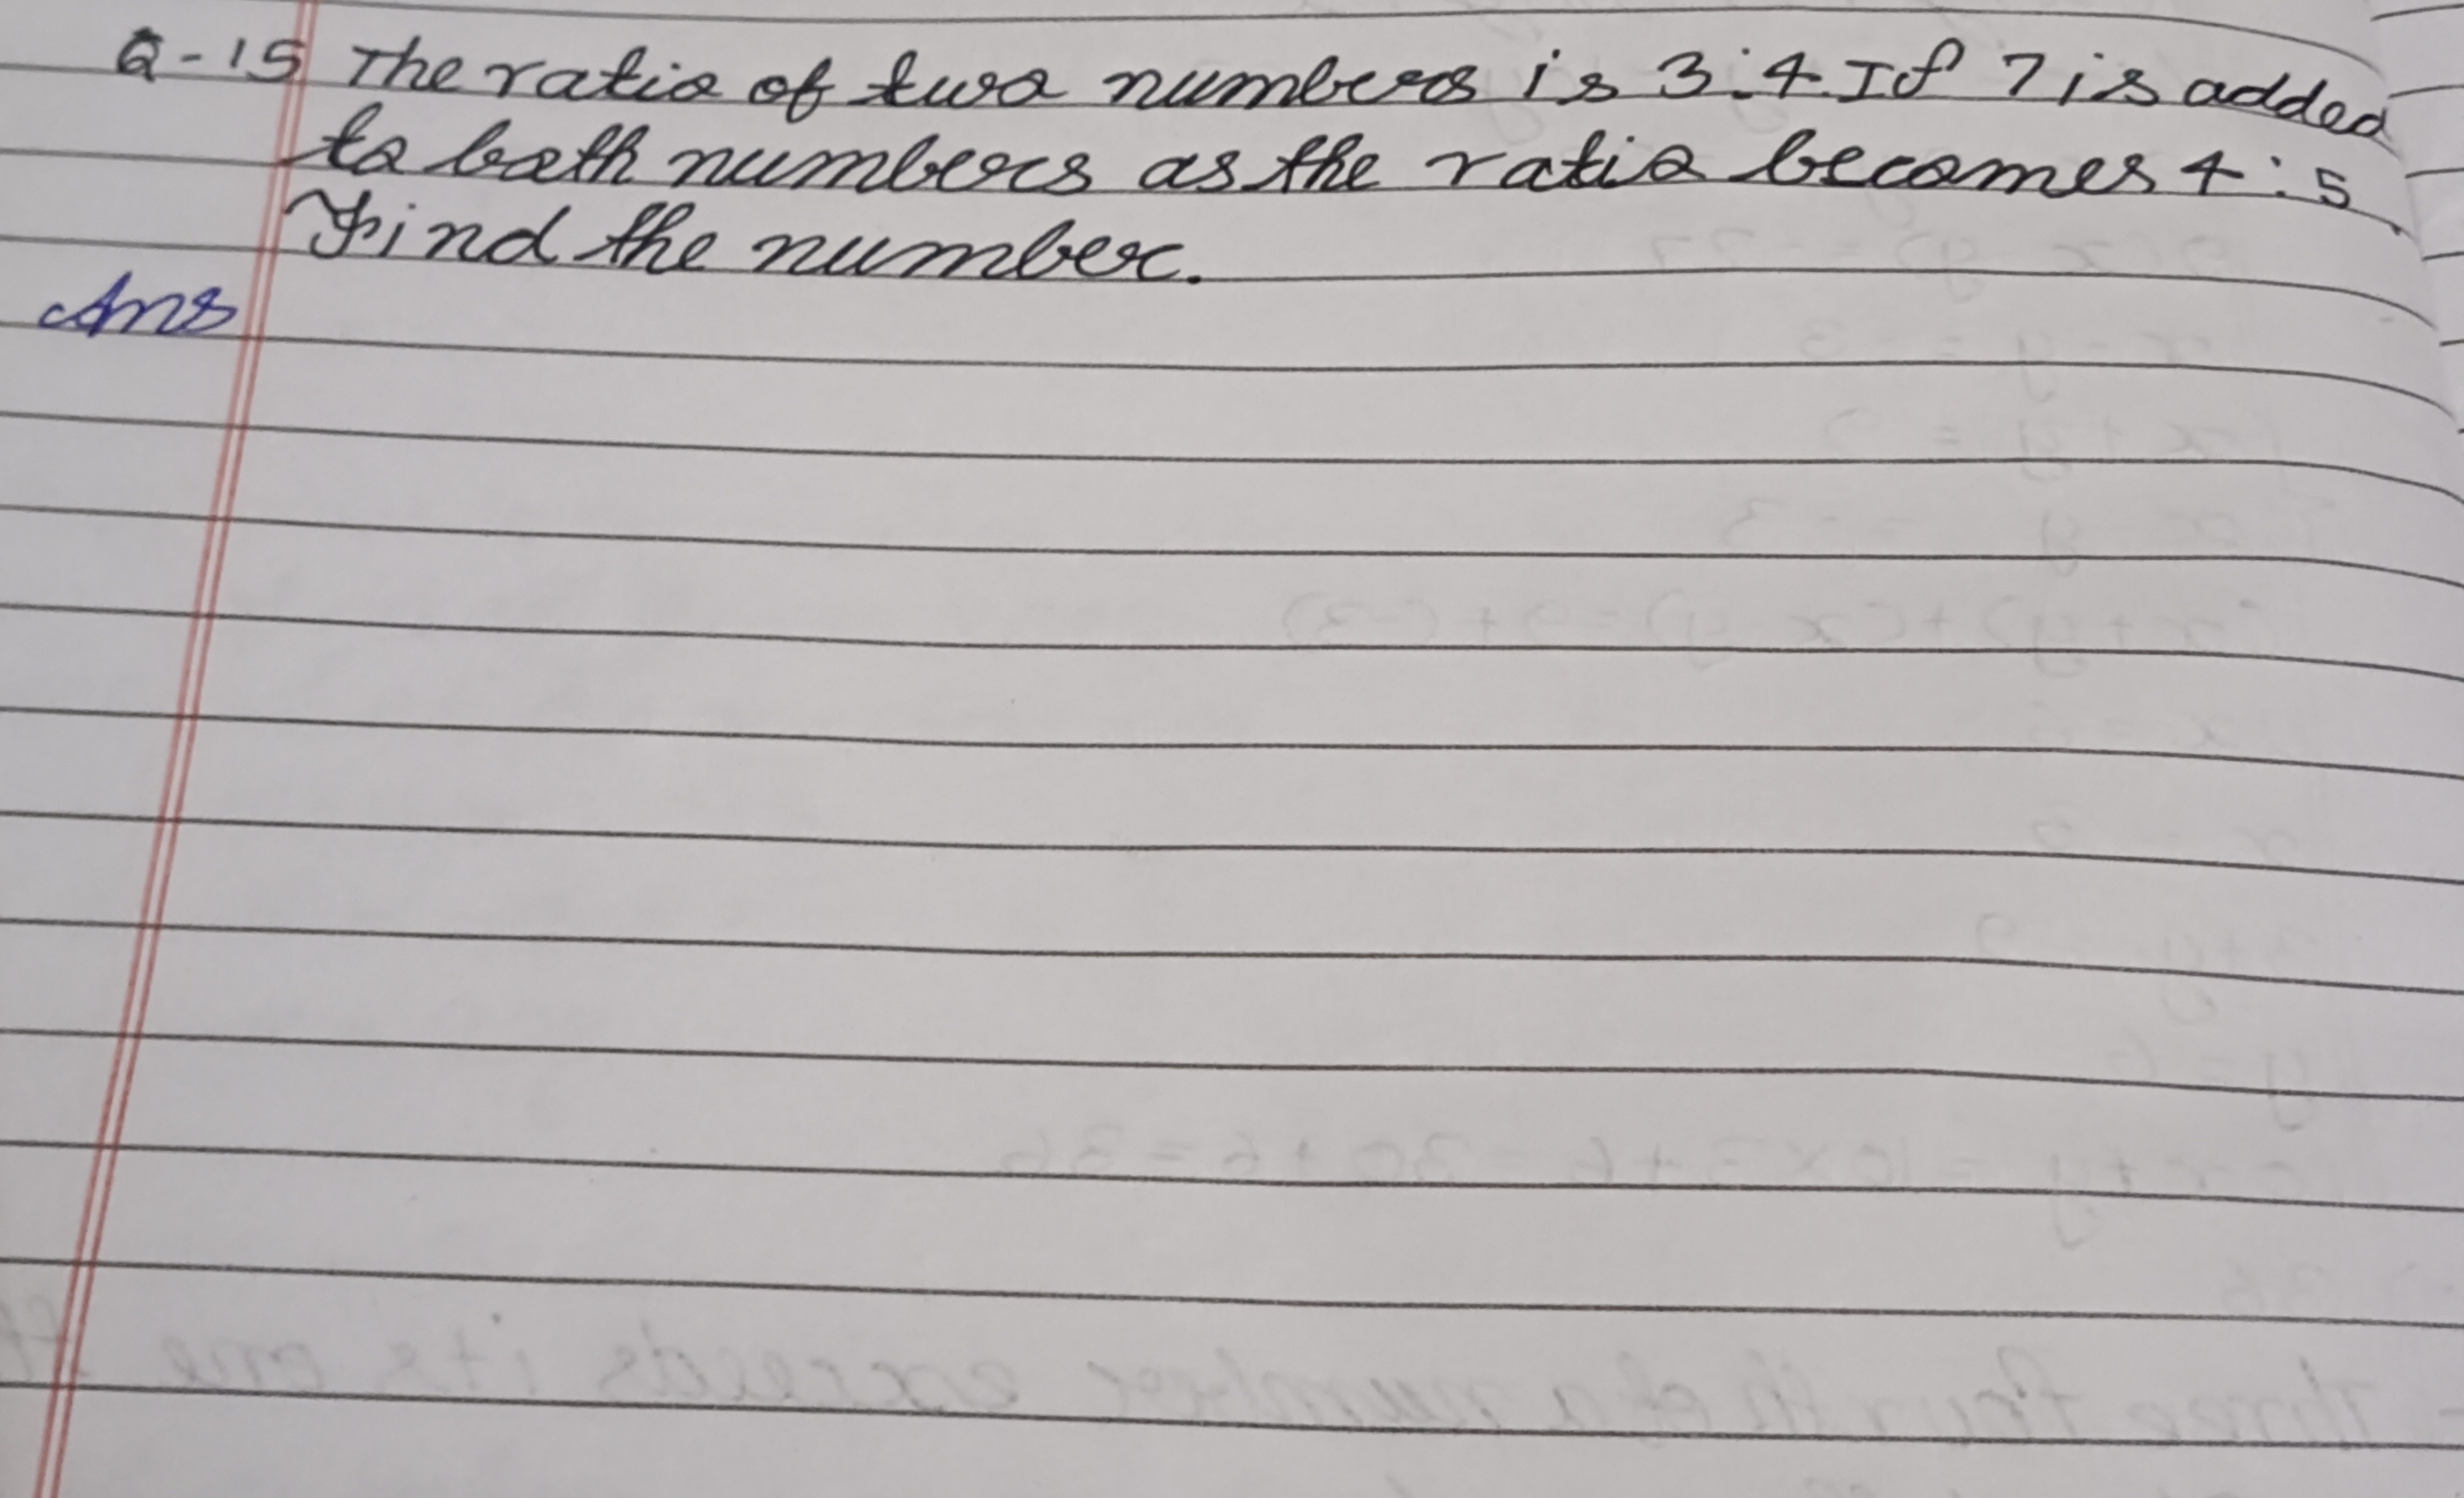 Q-15 The ratio of two numbers is 3:4. If 7 is added
to both numbers as the ratio becomes 4:5.
Find the number.
Ans